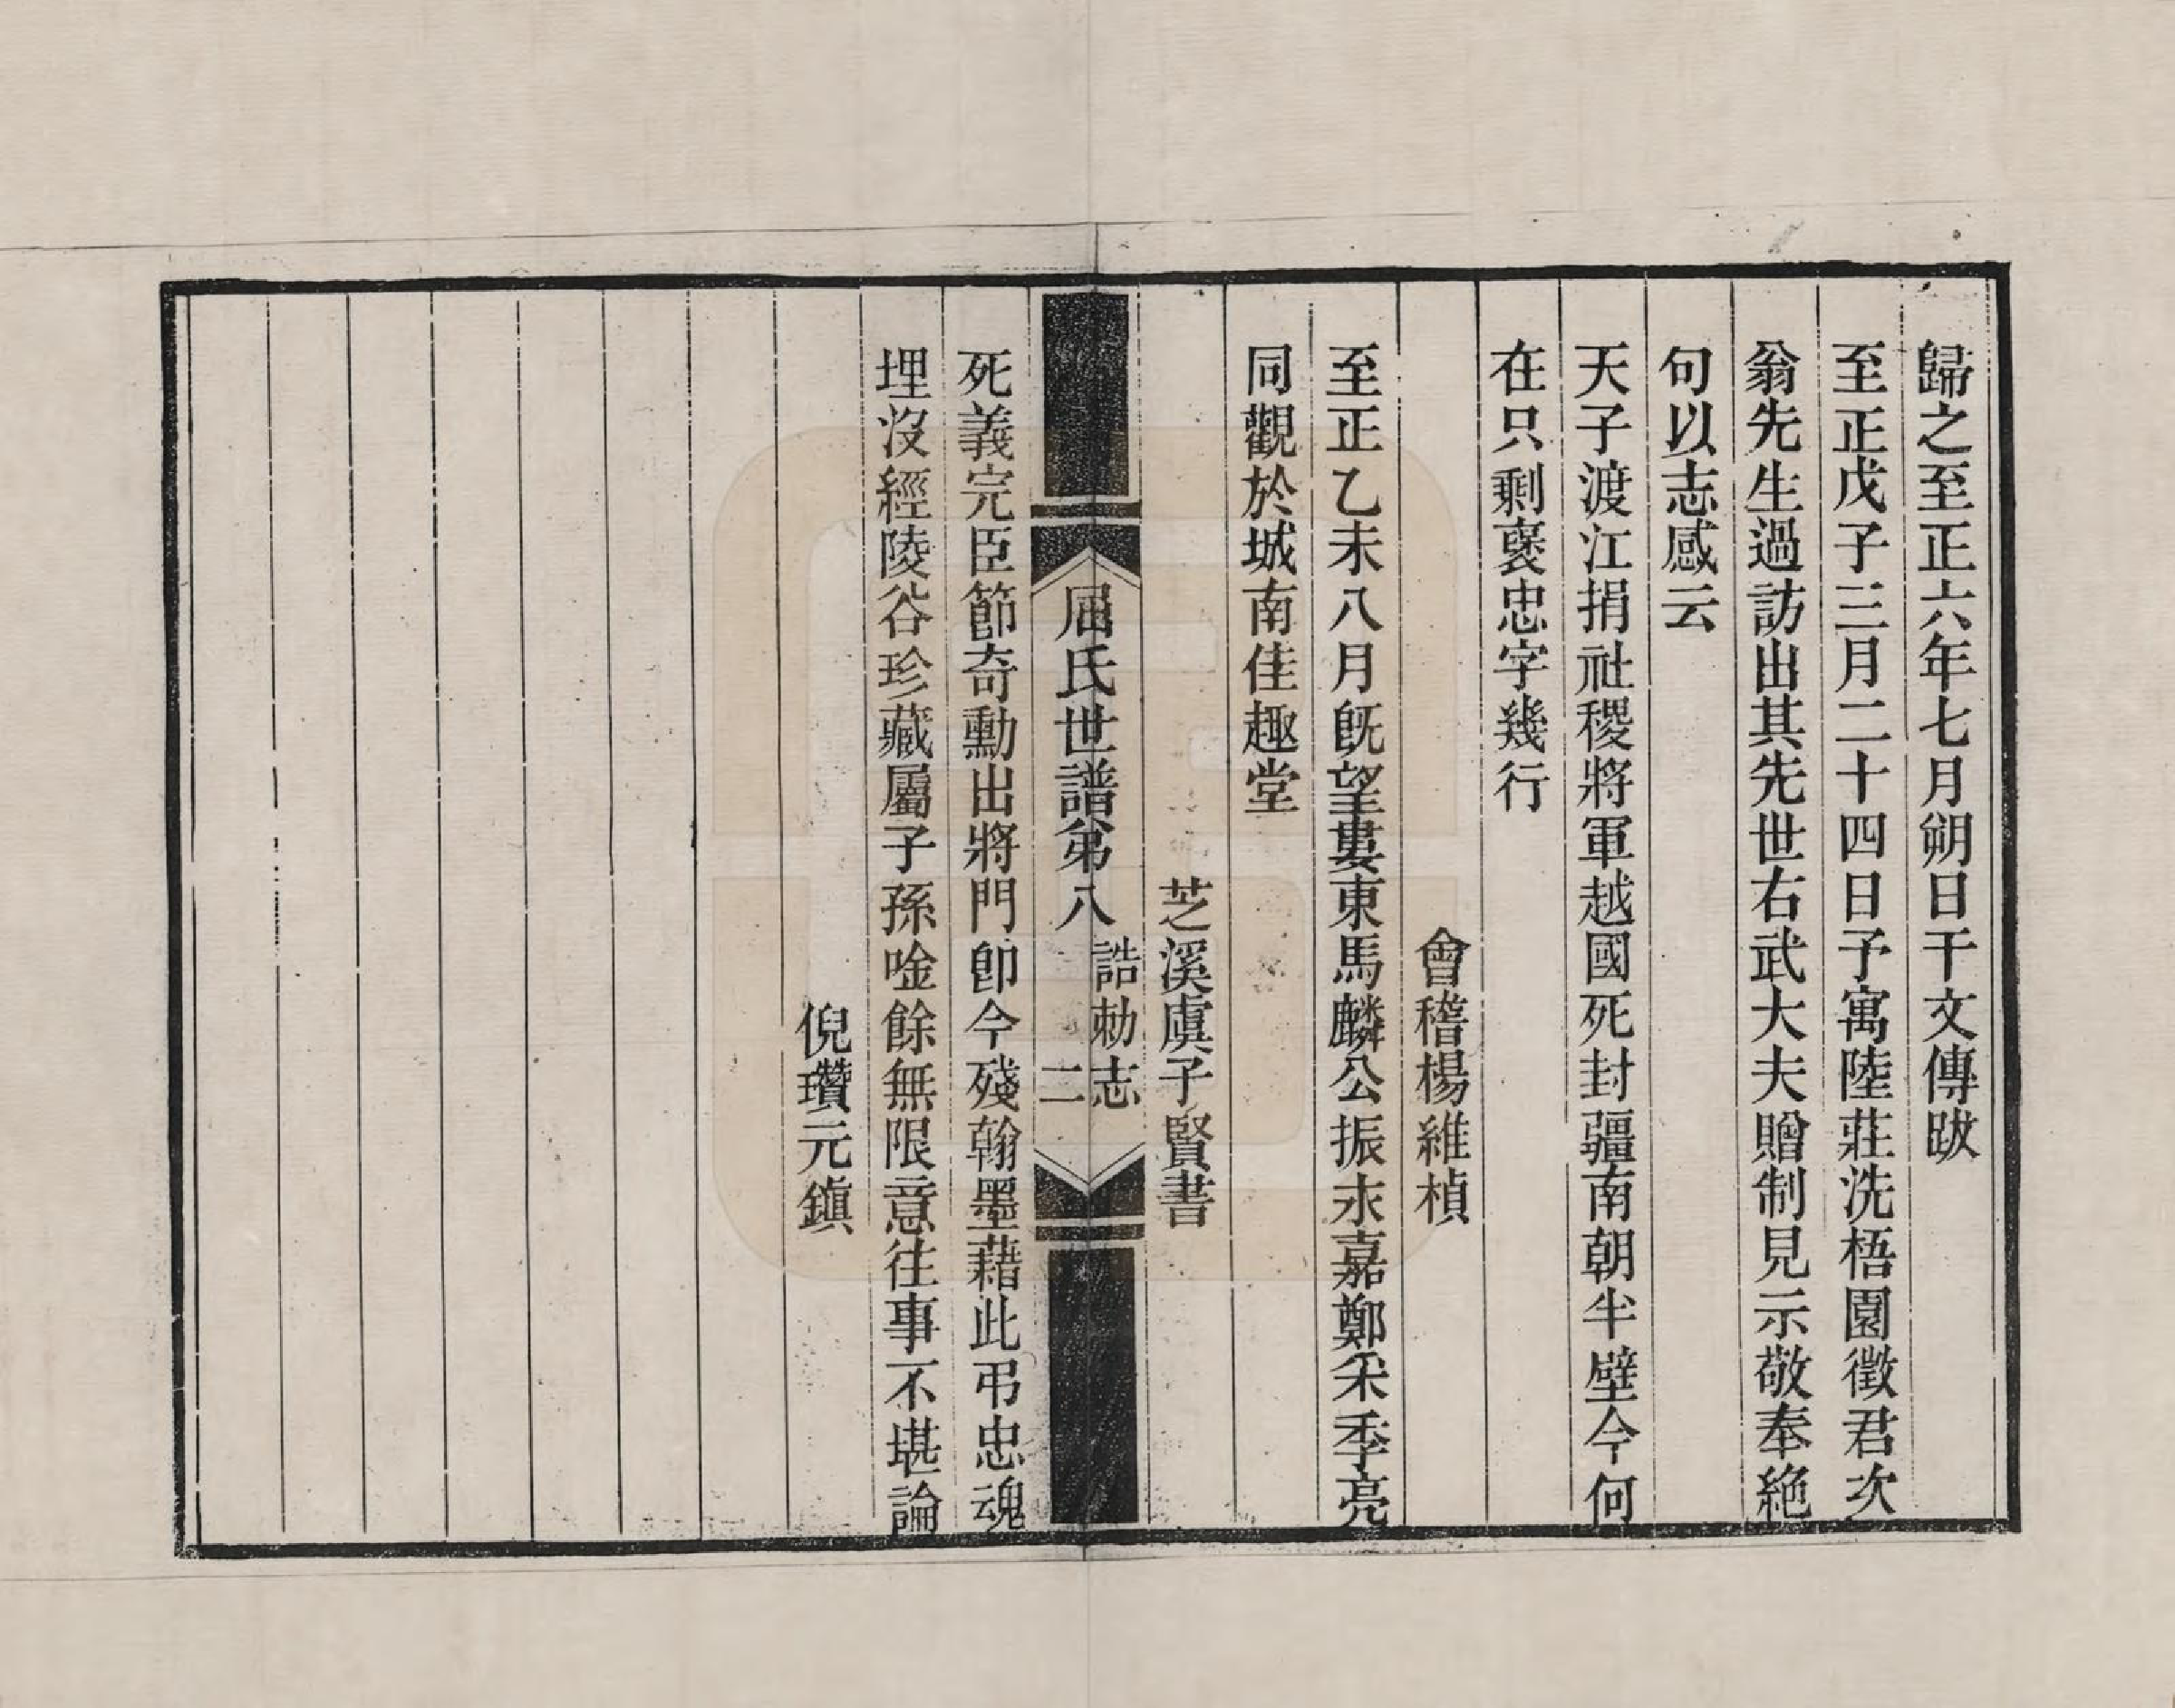 歸之至正六年七月朔日干文傳跋
至正戊子三月二十四日予寓陸莊洗梧園徵君次
翁先生過訪出其先世右武大夫贈制見示敬奉絶
句以志感云
天子渡江捐社稷將軍越國死封疆南朝半壁今何
在只剩襃忠字幾行
會稽楊維楨
至正乙未八月旣望婁東馬麟公振永嘉鄭采季亮
同觀於城南佳趣堂
芝溪虞子賢書
屈氏世譜弟八
誥勅志
二
死義完臣節奇勳出將門卽今殘翰墨藉此弔忠魂
埋沒經陵谷珍藏屬子孫唫餘無限意往事不堪論
倪瓚元鎭